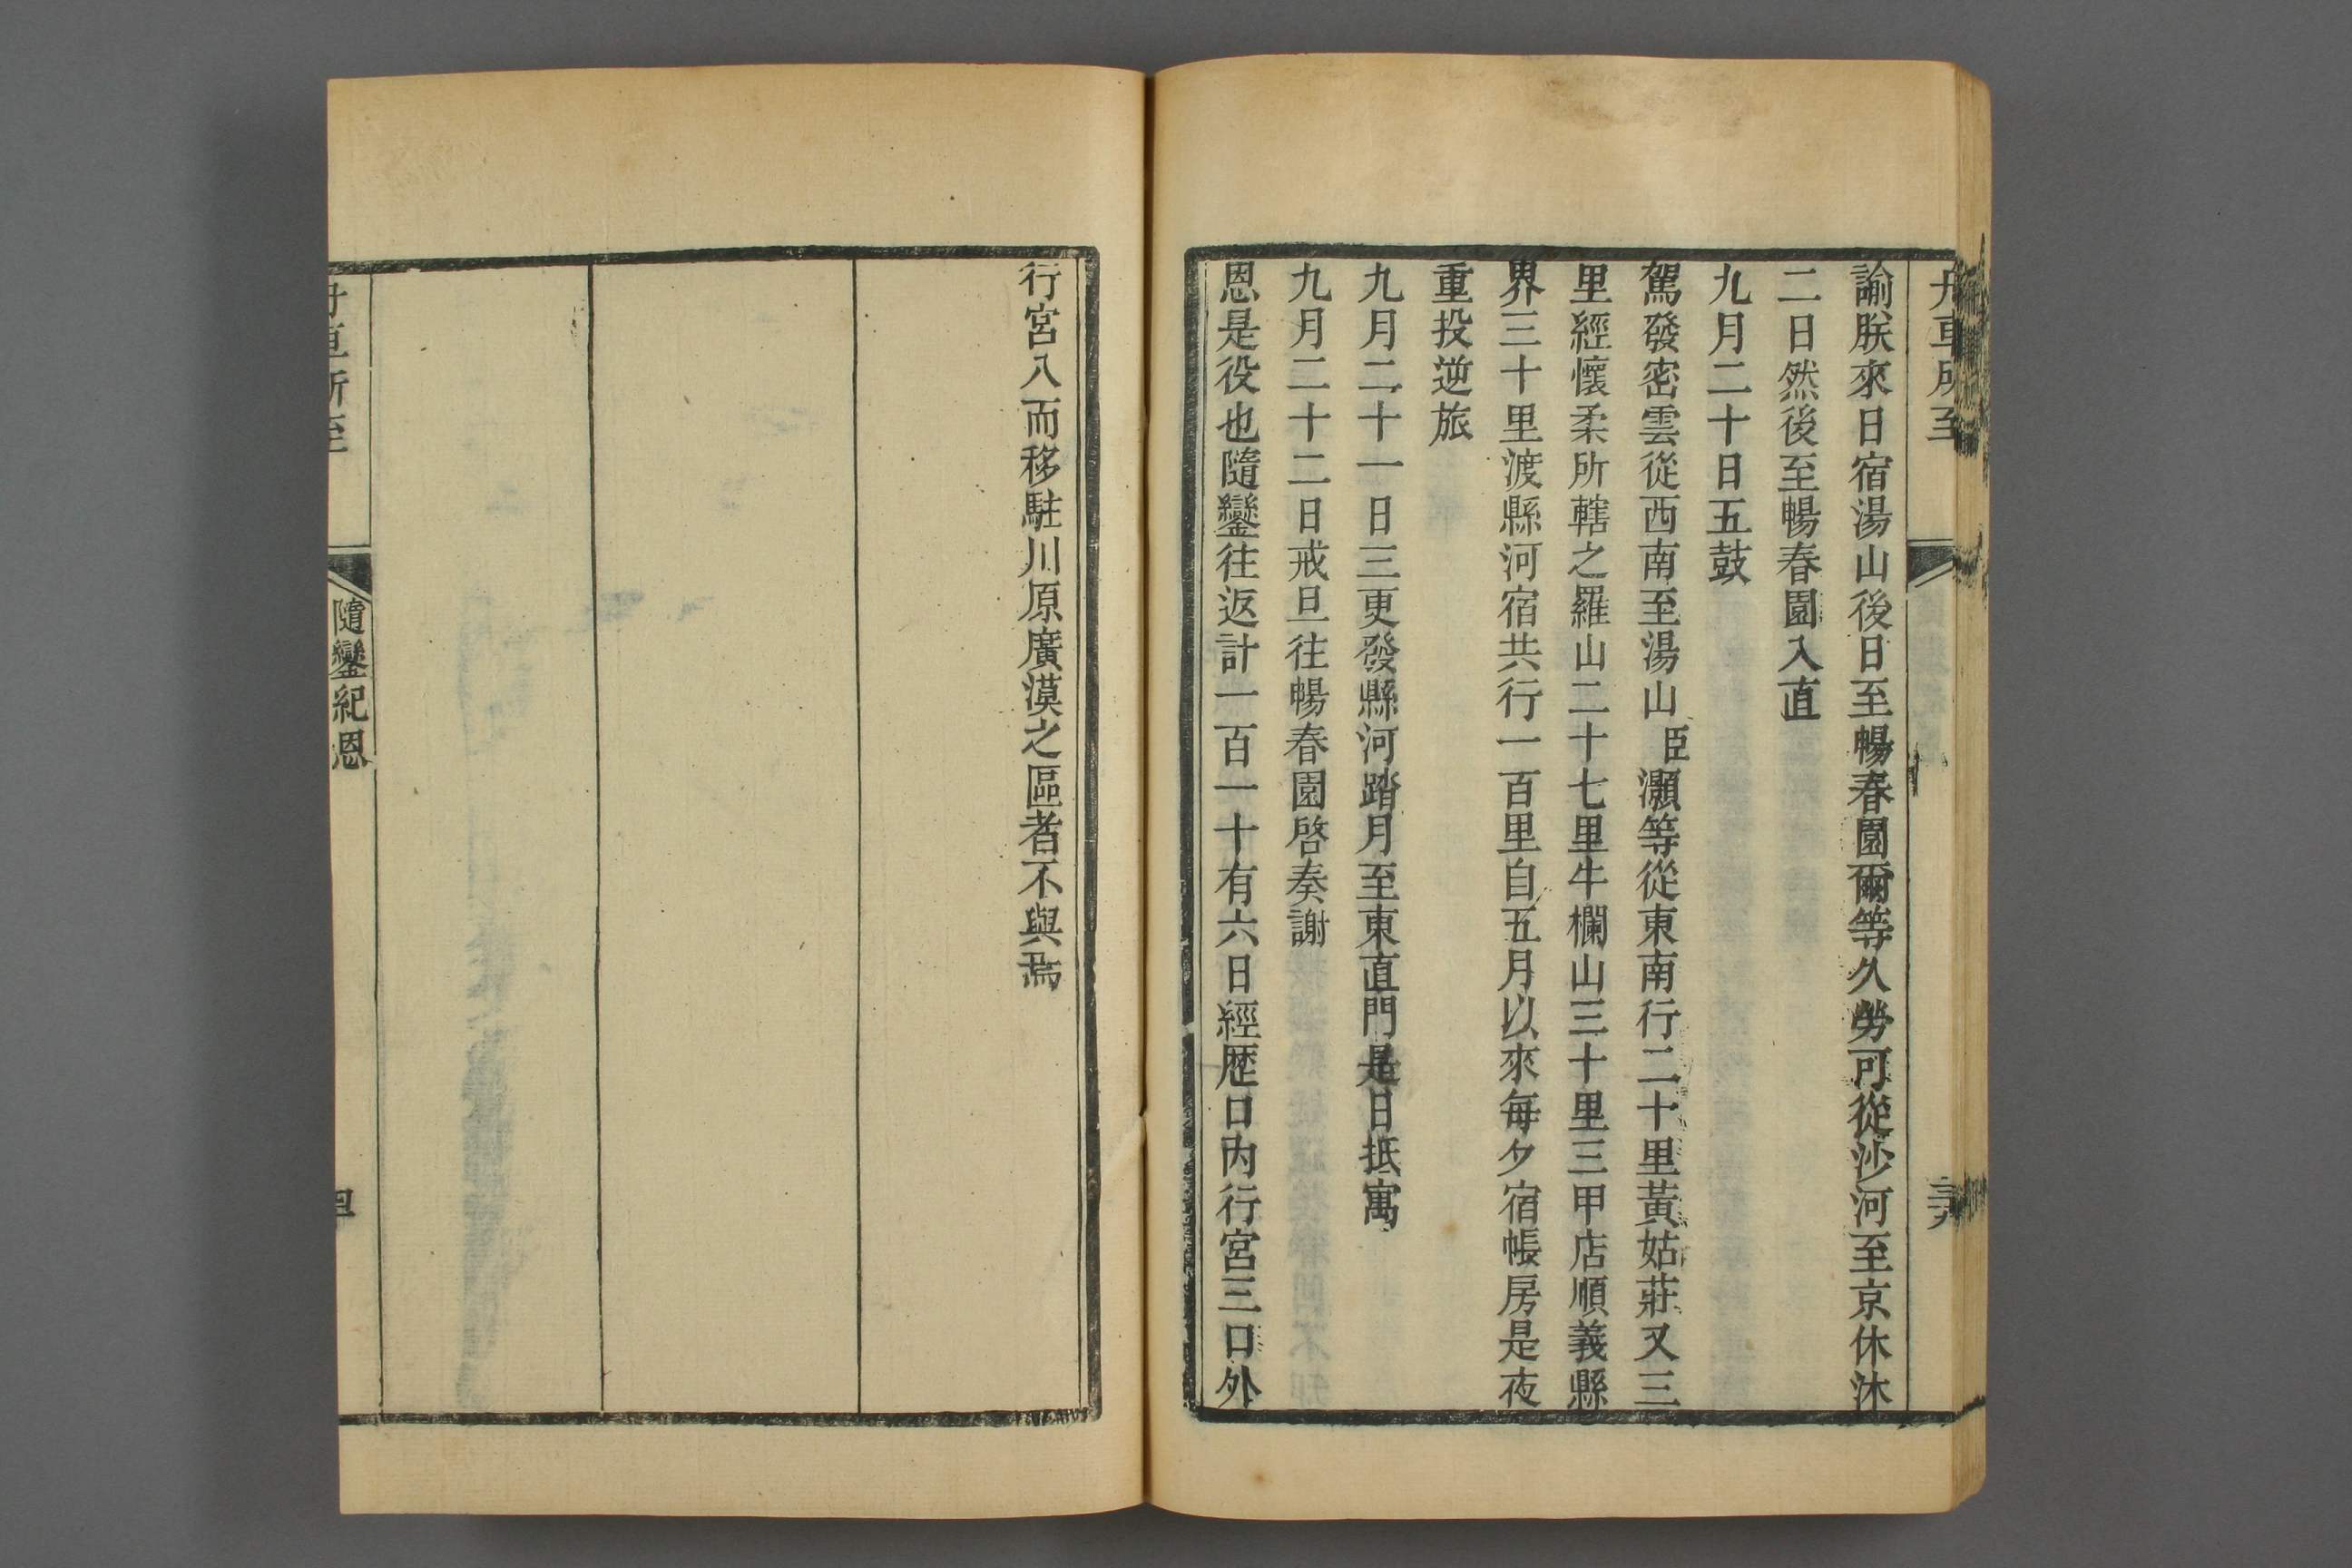 諭朕來日宿湯山後日至暢春園爾等久勞可從沙河至京休沐
二日然後至暢春園入直
九月二十日五鼓
駕發密雲從西南至湯山臣灝等從東南行二十里黃姑莊又三
里經懷柔所轄之羅山二十七里牛欄山三十里三甲店順義縣
界三十里渡縣河宿共行一百里自五月以來每夕宿帳房是夜
重投逆旅
九月二十一日三更發縣河踏月至東直門是日抵寓
九月二十二日戒旦往暢春園啓奏謝
恩是役也隨鑾往返計一百一十有六日經歷口內行宮三口外
行宮八而移駐川原廣漠之區者不與焉
隨鑾紀恩